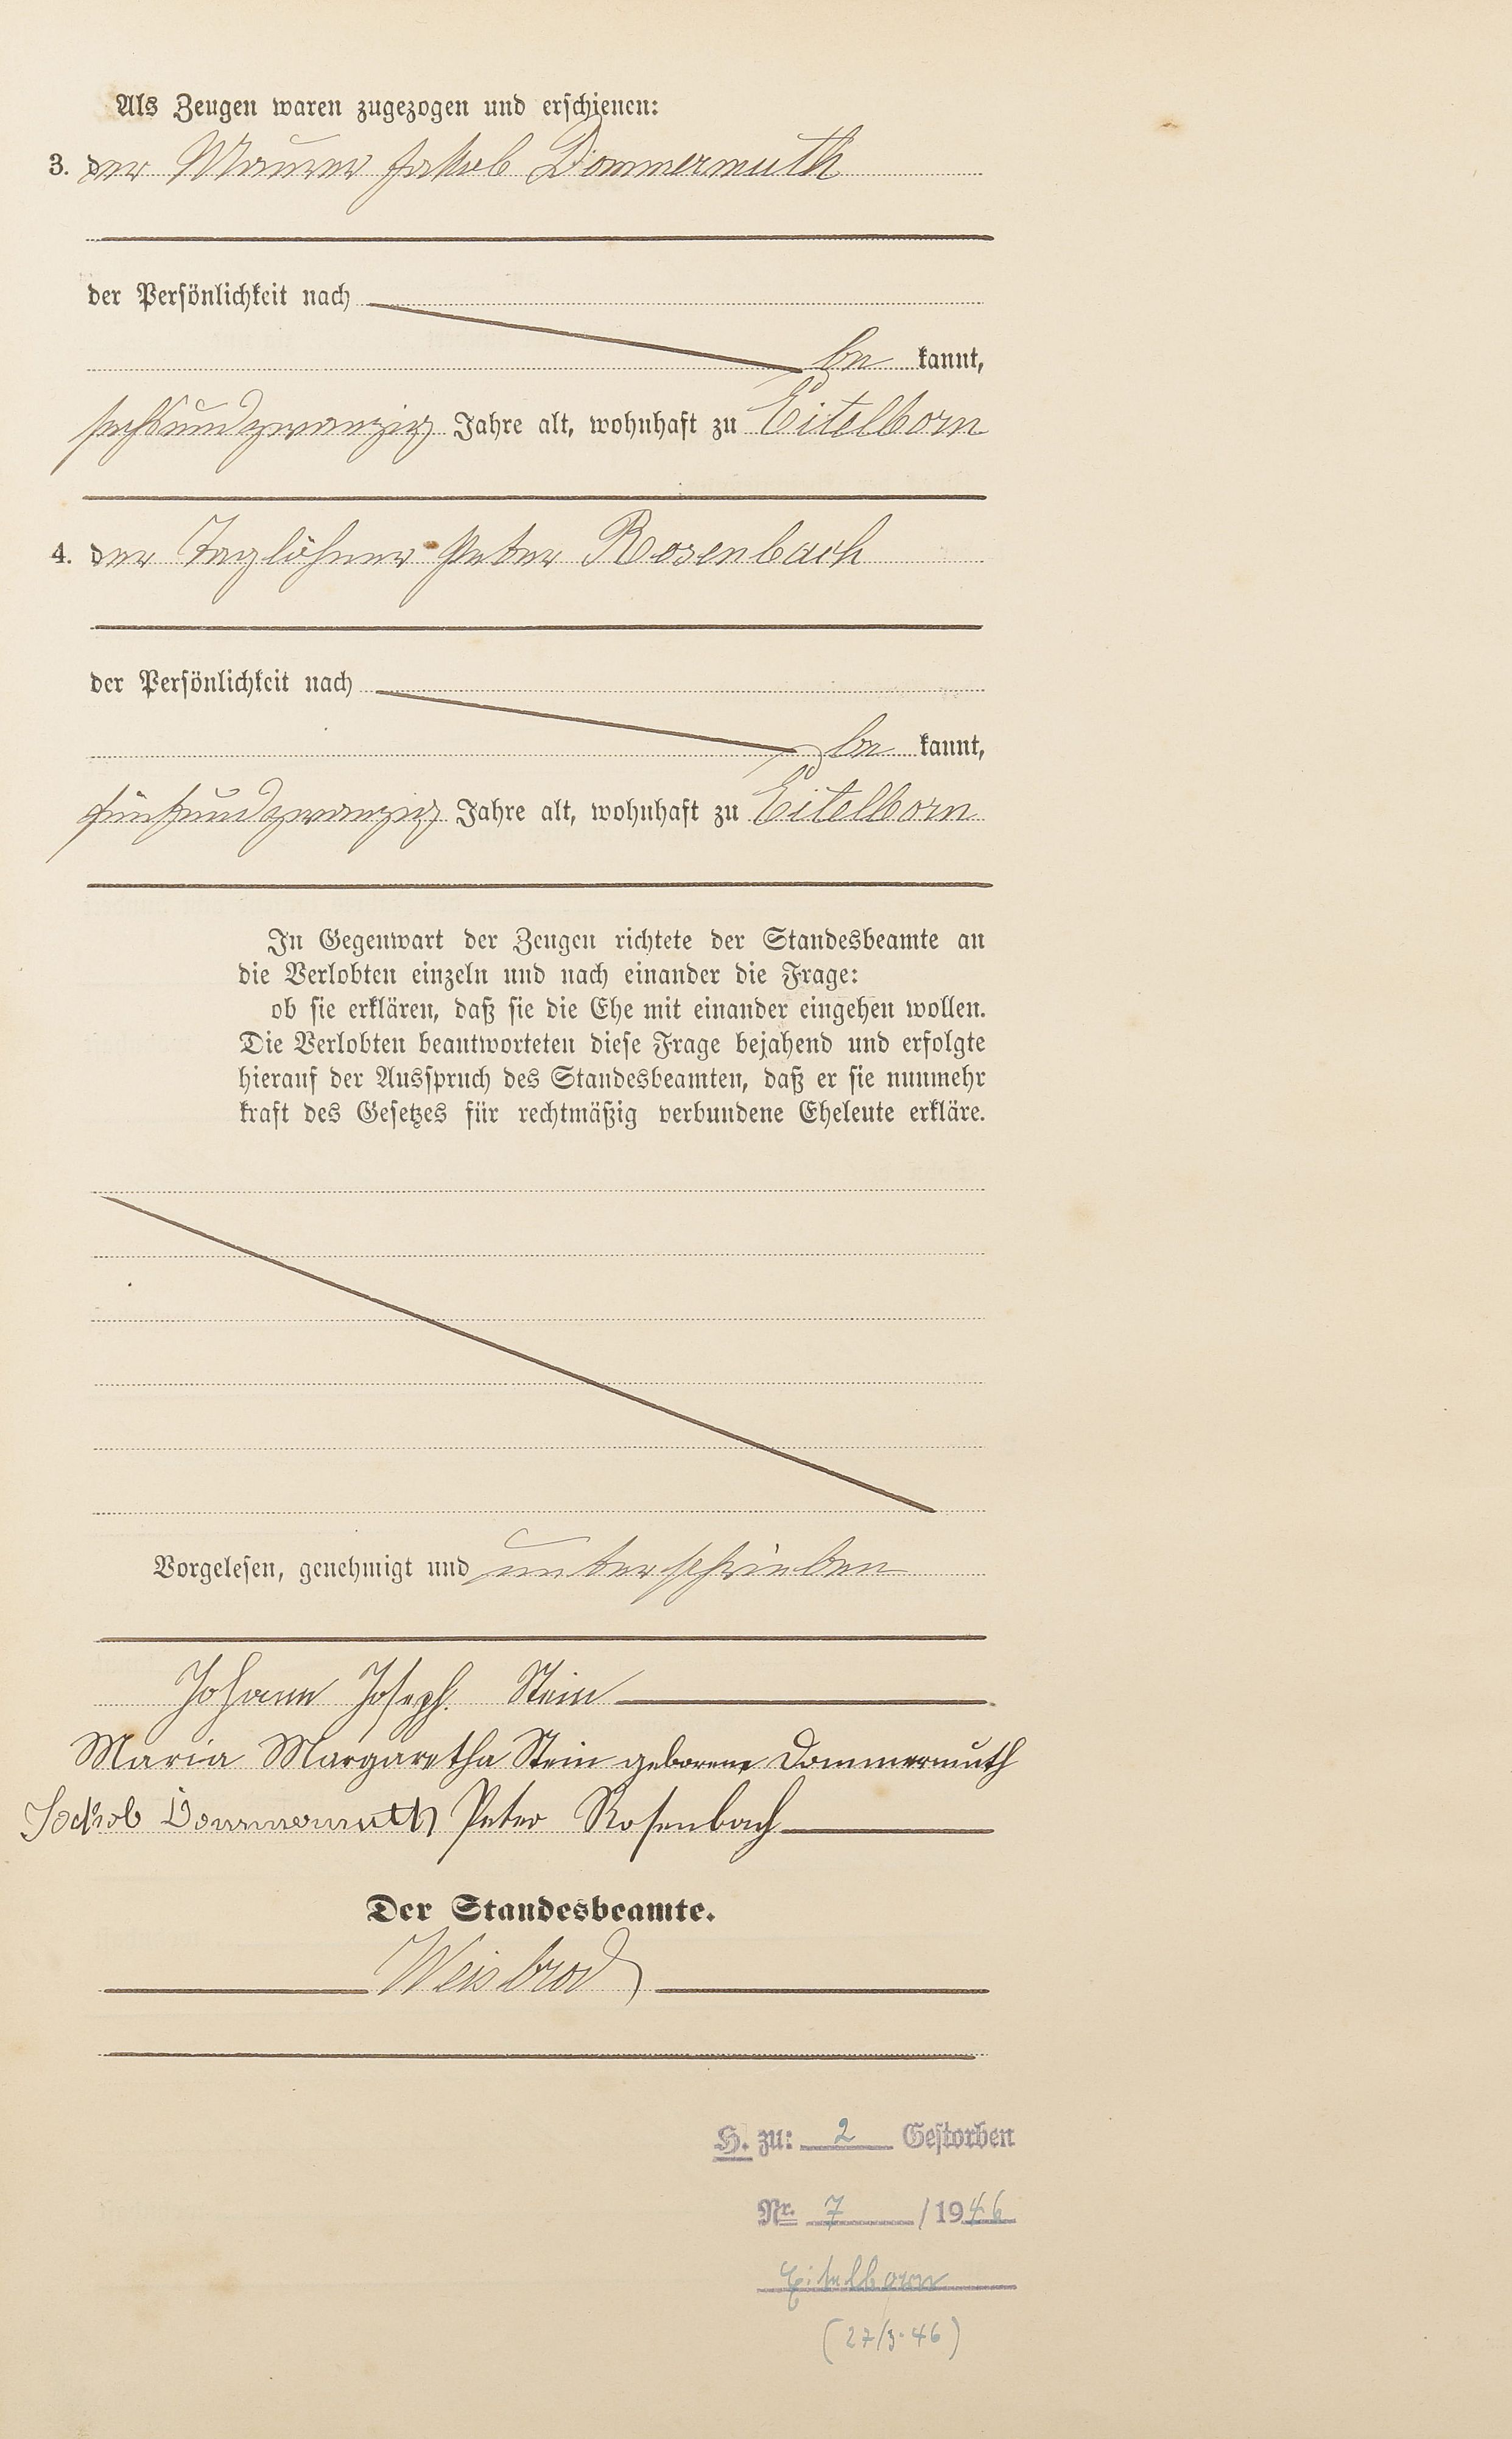 Als Zeugen waren zugezogen und erschienen:
3. der Maurer Jakob Dommermuth
der Persönlichkeit nach
be kannt,
sechsundzwanzig Jahre alt, wohnhaft zu Eitelborn
4. der Taglöhner Peter Rosenbach
der Persönlichkeit nach
be kannt,
fünfundzwanzig Jahre alt, wohnhaft zu Eitelborn
In Gegenwart der Zeugen richtete der Standesbeamte an
die Verlobten einzeln und nach einander die Frage:
ob sie erklären, daß sie die Ehe mit einander eingehen wollen.
Die Verlobten beantworteten diese Frage bejahend und erfolgte
hierauf der Ausspruch des Standesbeamten, daß er sie nunmehr
kraft des Gesetzes für rechtmäßig verbundene Eheleute erkläre.
Vorgelesen, genehmigt und unterschrieben
Johann Joseph Stein
Maria Margaretha Stein geborene Dommermuth
Jackob Dommermuth Peter Rosenbach
Der Standesbeamte.
Weisbrod
H. zu: 2 Gestorben
Nr. 7 / 1946
Eitelborn
(27/3.46)